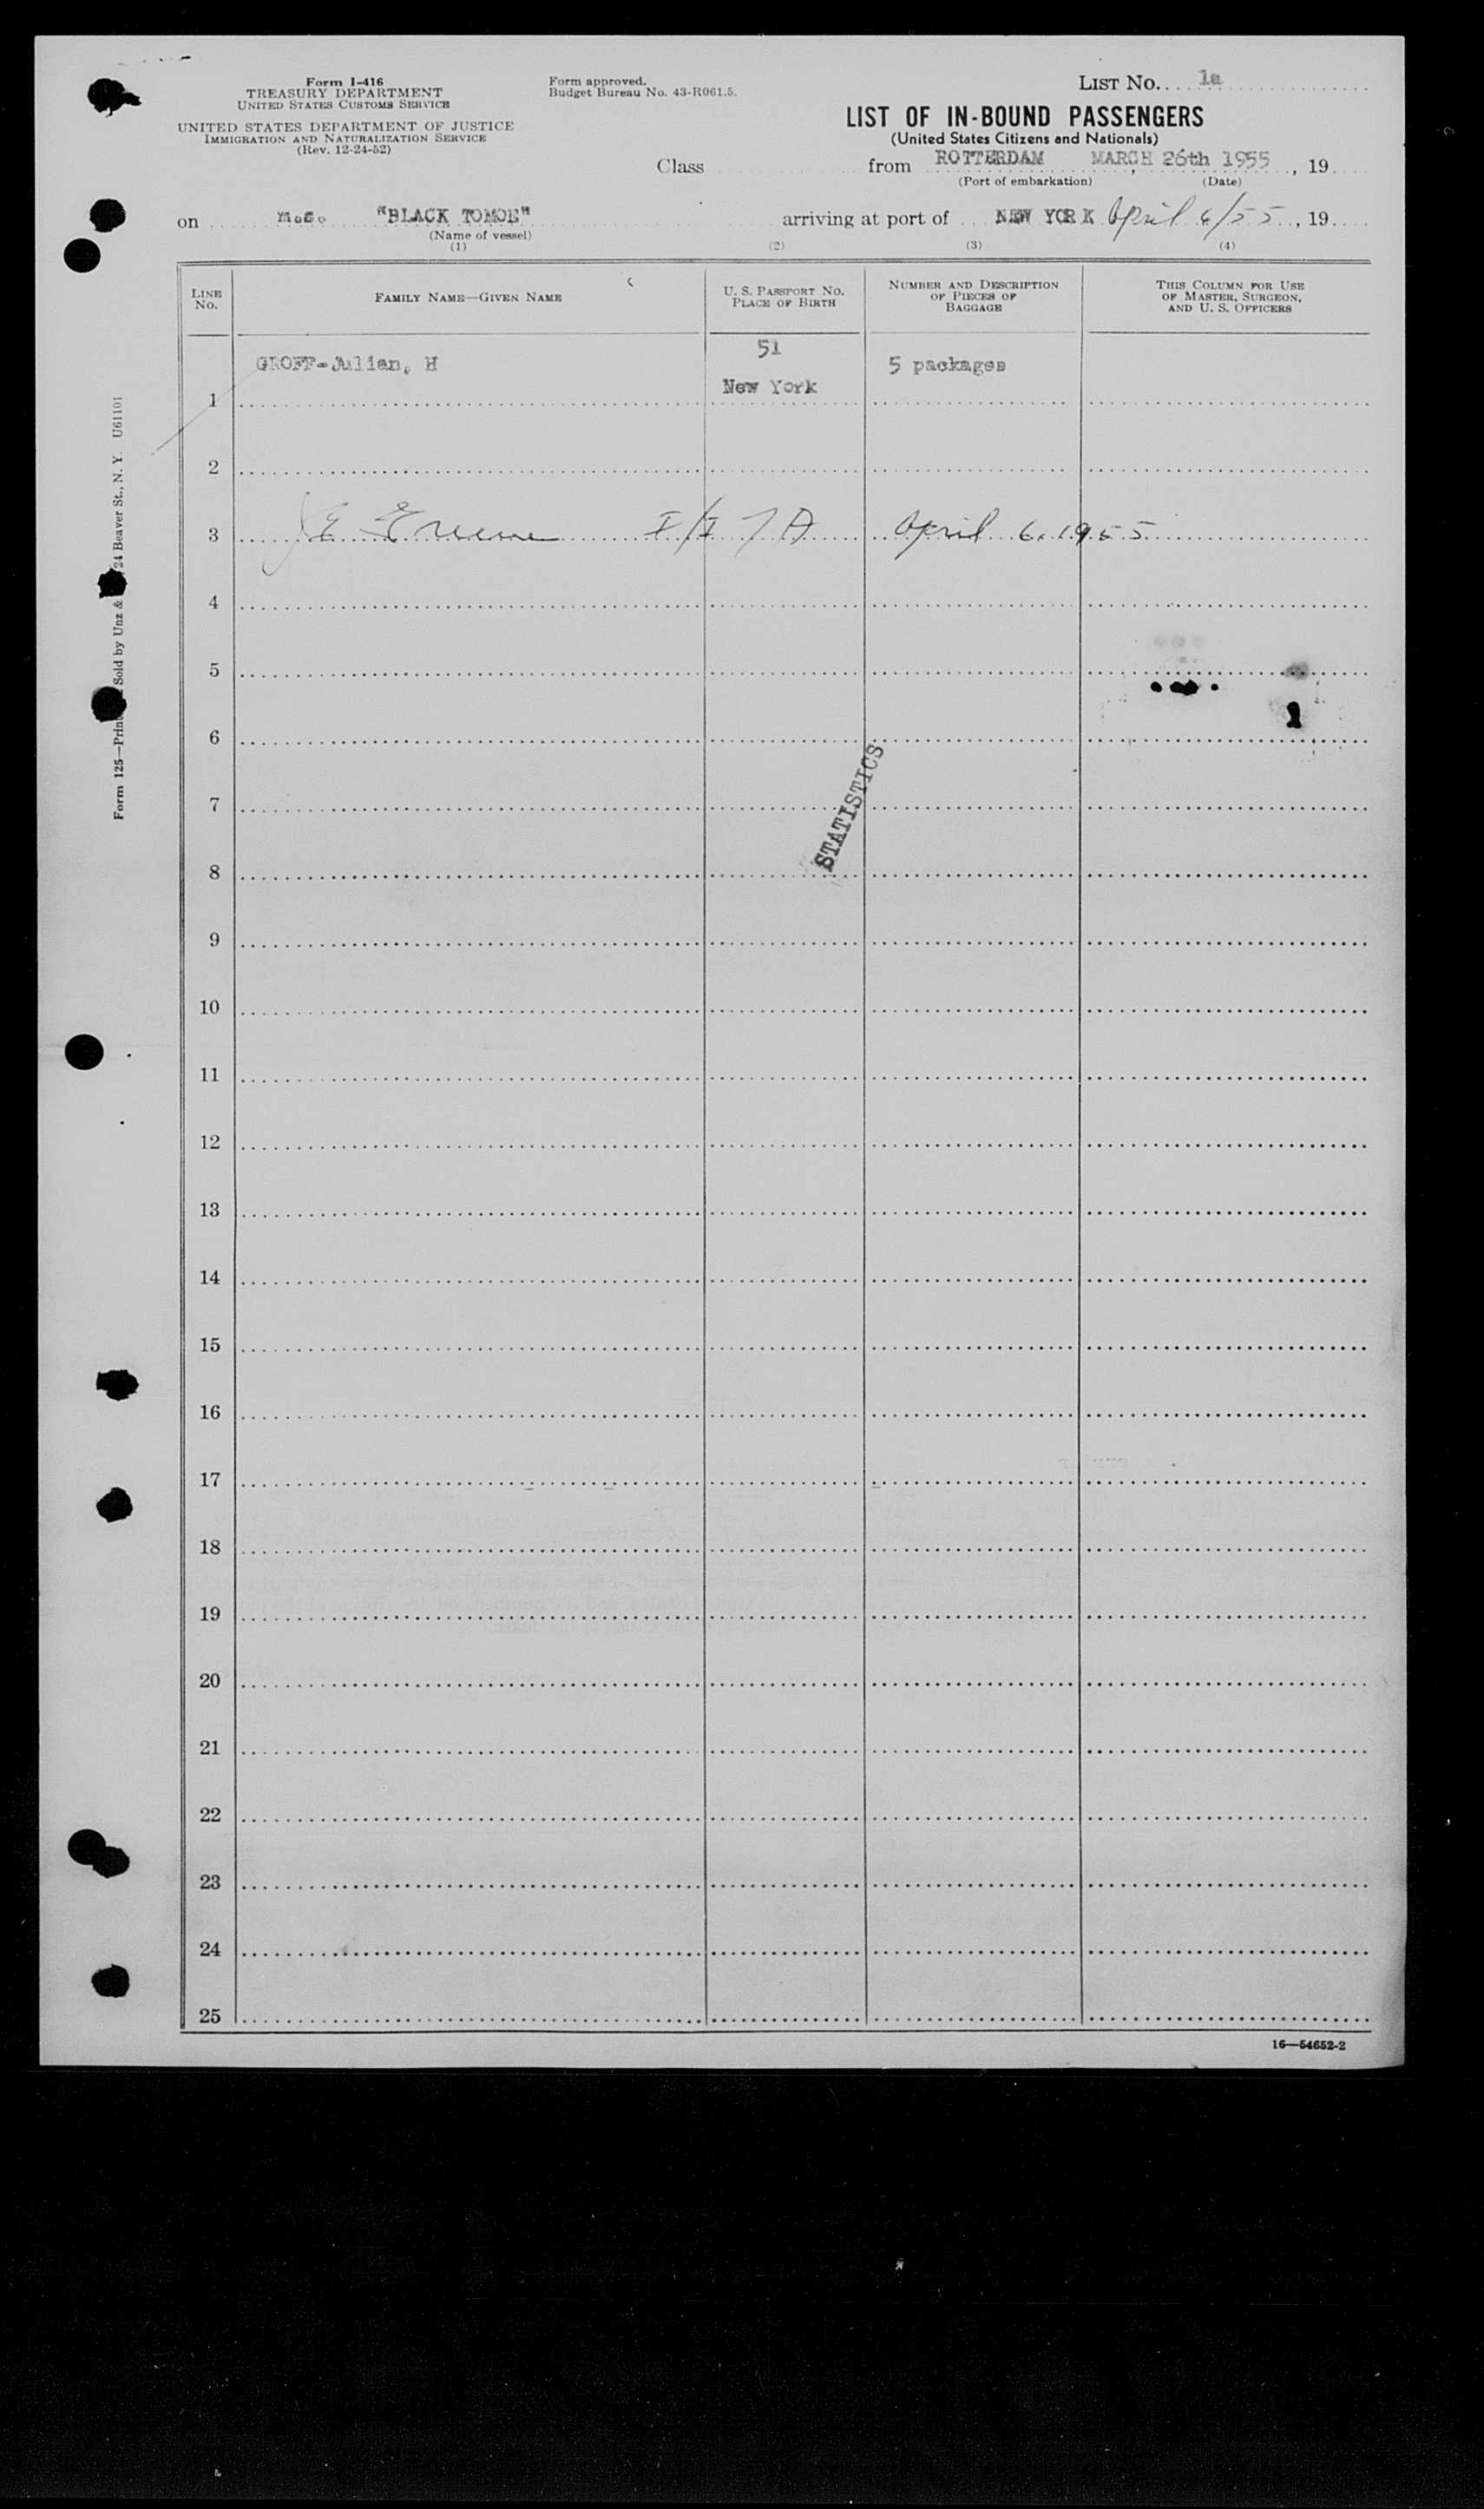 Form I-416
TREASURY DEPARTMENT
UNITED STATES CUSTOMS SERVICE
UNITED STATES DEPARTMENT OF JUSTICE
IMMIGRATION AND NATURALIZATION SERVICE
(Rev. 12-24-52)
Form approved.
Budget Bureau No. 43-R061.5.
LIST No. 1a
LIST OF IN-BOUND PASSENGERS
(United States Citizens and Nationals)
Class from ROTTERDAM, MARCH 26th 1955, 19
(Port of embarkation) (Date)
on m.s. "BLACK TOMOE" arriving at port of NEW YORK April 6/55, 19
(Name of vessel)
(1) (2) (3) (4)
LINE No. FAMILY NAME—GIVEN NAME U. S. PASSPORT No. PLACE OF BIRTH NUMBER AND DESCRIPTION OF PIECES OF BAGGAGE THIS COLUMN FOR USE OF MASTER, SURGEON, AND U. S. OFFICERS
51
GROFF-Julian, H 5 packages
New York
1
2
3 Greene April 6, 1955
4
5
6
7
STATISTICS
8
9
10
11
12
13
14
15
16
17
18
19
20
21
22
23
24
25
16—54652-2
Form 125—Sold by Unz & 24 Beaver St., N. Y. U61101